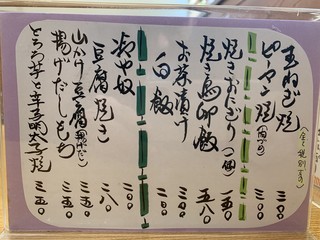 玉ねぎ焼 三〇〇
ピーマン焼(肉入り) 三〇〇
焼きおにぎり(一個) 一五〇
焼き鳥卵飯 五八〇
お茶漬け 三〇〇
白飯 二〇〇
冷や奴 二〇〇
豆腐焼き 二八〇
山かけ豆腐 三五〇
揚げだしもち 三五〇
とろろ芋と辛子明太子焼 三五〇